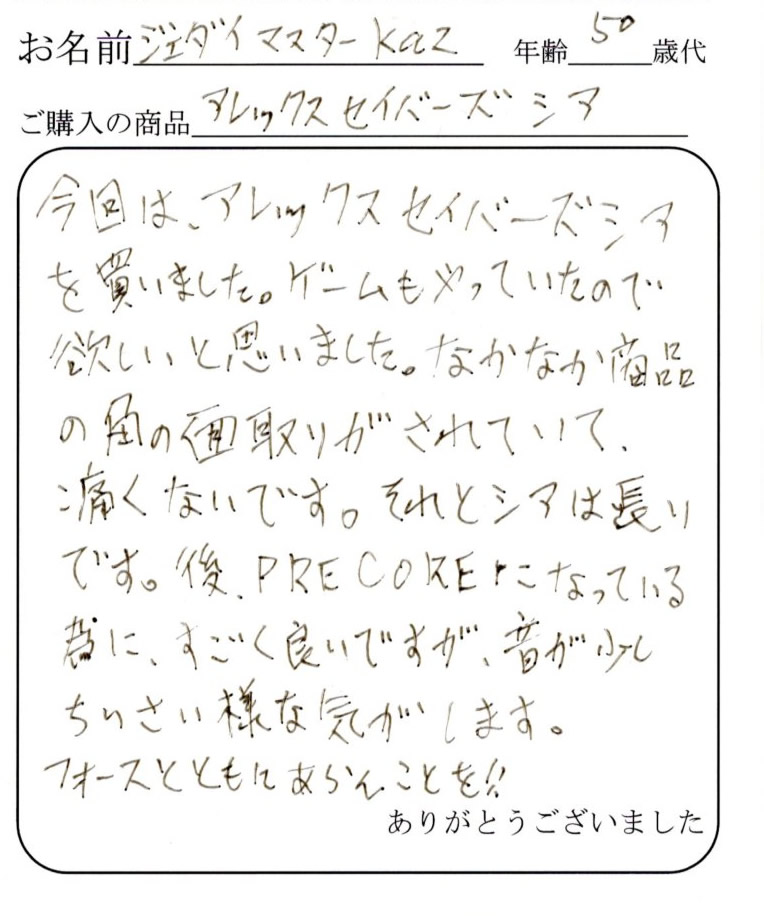 お名前 ジェダイマスターkaz 年齢 50 歳代
ご購入の商品 アレックスセイバーズシア
今回は、アレックスセイバーズシア
を買いました。ゲームもやっていたので
欲しいと思いました。なかなか商品
の角の面取りがされていて、
痛くないです。それとシアは長い
です。後、PRECOREになっている
為に、すごく良いですが、音が少し
ちいさい様な気がします。
フォースとともにあらんことを!!
ありがとうございました